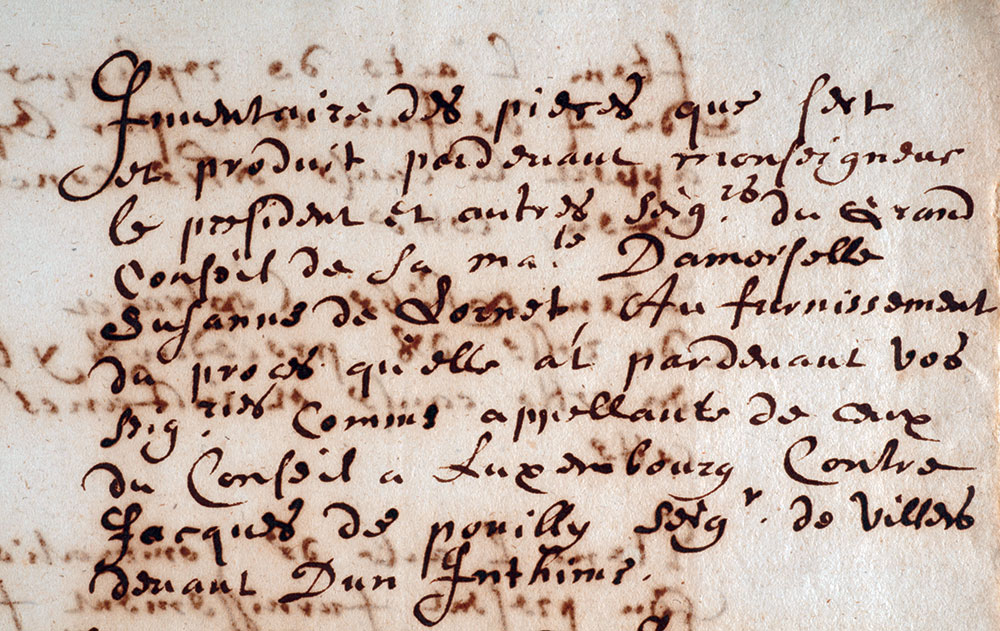 Inventaire des pieces que sert
et produit pardevant monseigneur
le president et autres seig.rs du Grand
Conseil de sa ma.te Damoiselle
Susanne de Gornet, Au furnissement
du proces qu'elle at pardevant vos
seig.ries Comme appellante de ceux
du Conseil a Luxembourg Contre
Jacques de pouilly seig.r de Villers
devant Dun Inthimé.